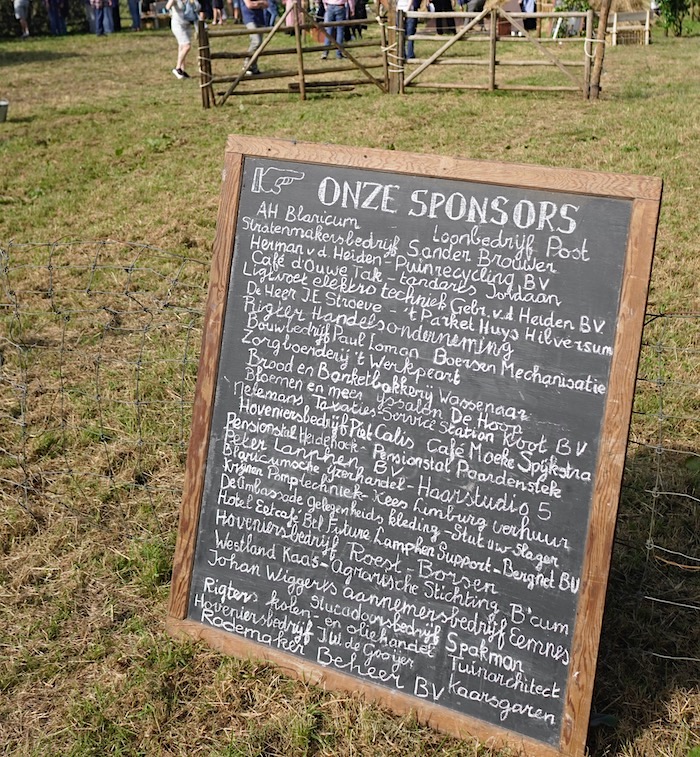 ONZE SPONSORS
AH Blaricum Loonbedrijf Post
Stratenmakersbedrijf Sander Brouwer
Herman v.d. Heiden - Puinrecycling BV
Café d'Ouwe Tak - tandarts Jordaan
Ligtvoet elektro techniek Gebr. v.d Heiden BV
De Heer J.E Stroeve - 't Parket Huys Hilversum
Rigter Handelsonderneming
Bouwbedrijf Paul Loman Boersen Mechanisatie
Zorgboerderij 't Werkpeart
Brood en Banketbakkerij Wassenaar
Bloemen en meer ijssalon De Hoop
Melemans, Taxaties Service Station Koot BV
Hoveniersbedrijf Piet Calis Café Moeke Spijkstra
Pensionstal Heidehoek - Pensionstal Paardenstek
Peter Lanphen BV - Haarstudio 5
Blaricumsche ijzerhandel - Kees Limburg verhuur
Krijnen Pomptechniek - Stut uw Slager
De Ambassade gelegenheids kleding
Hotel Eetcafé Bel Future Lampken Support - Bergnet BV
Hoveniersbedrijf Roest - Borsen
Westland Kaas - Agrarische Stichting B'cum
Johan Wiggerts aannemersbedrijf Eemnes
Rigters kolen- en oliehandel stucadoorsbedrijf Spakman
Hoveniersbedrijf J.W. de Gooijer Tuinarchitect
Rodemaker Beheer BV Kaarsgaren